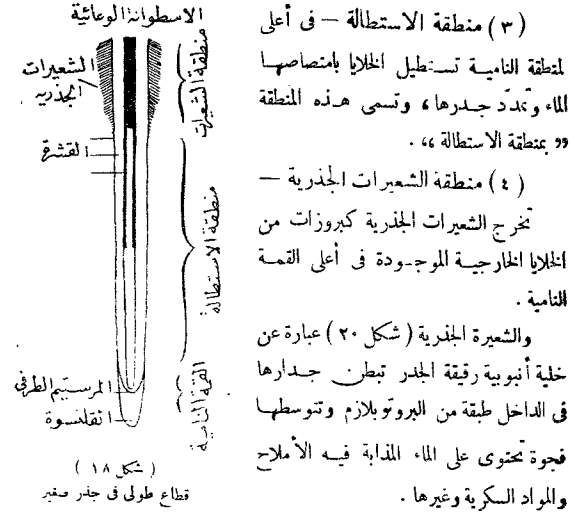 (٣) منطقة الاستطالة — فى أعلى
لمنطقة النامية تستطيل الخلايا بامتصاصها
الماء وتمدّد جدرها، وتسمى هذه المنطقة
”بمنطقة الاستطالة“.
(٤) منطقة الشعيرات الجذرية —
تخرج الشعيرات الجذرية كبروزات من
الخلايا الخارجية الموجودة فى أعلى القمة
النامية .
والشعيرة الجذرية (شكل ٢٠) عبارة عن
خلية أنبوبية رقيقة الجدر تبطن جدارها
فى الداخل طبقة من البروتوبلازم وتتوسطها
فجوة تحتوى على الماء المذابة فيه الأملاح
والمواد السكرية وغيرها .
الاسطوانة الوعائية
منطقة الشعيرات
الشعيرات
الجذريه
القشرة
منطقة الاستطالة
القمة النامية
المرستيم الطرفى
القلنسوة
(شكل ١٨)
قطاع طولى فى جذر صغير